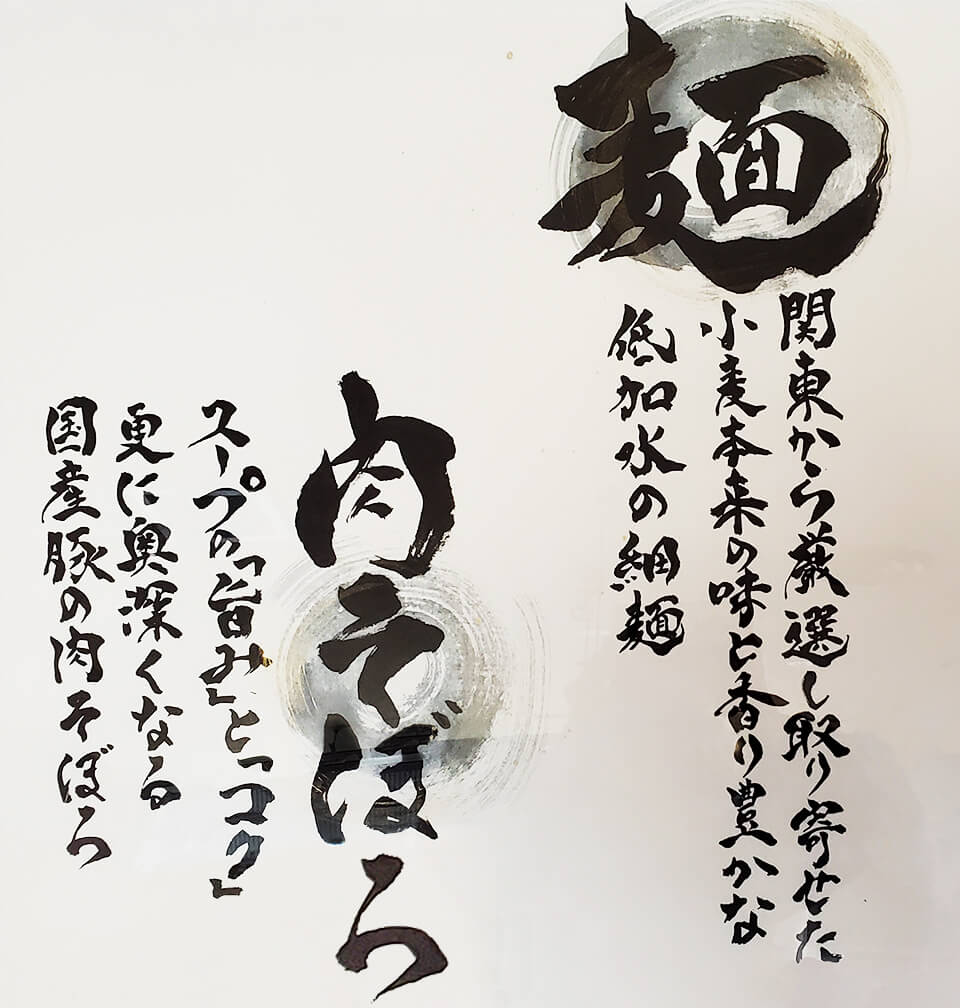 麺
関東から厳選し取り寄せた
小麦本来の味と香り豊かな
低加水の細麺
肉そぼろ
スープの「旨み」と「コク」
更に奥深くなる
国産豚の肉そぼろ